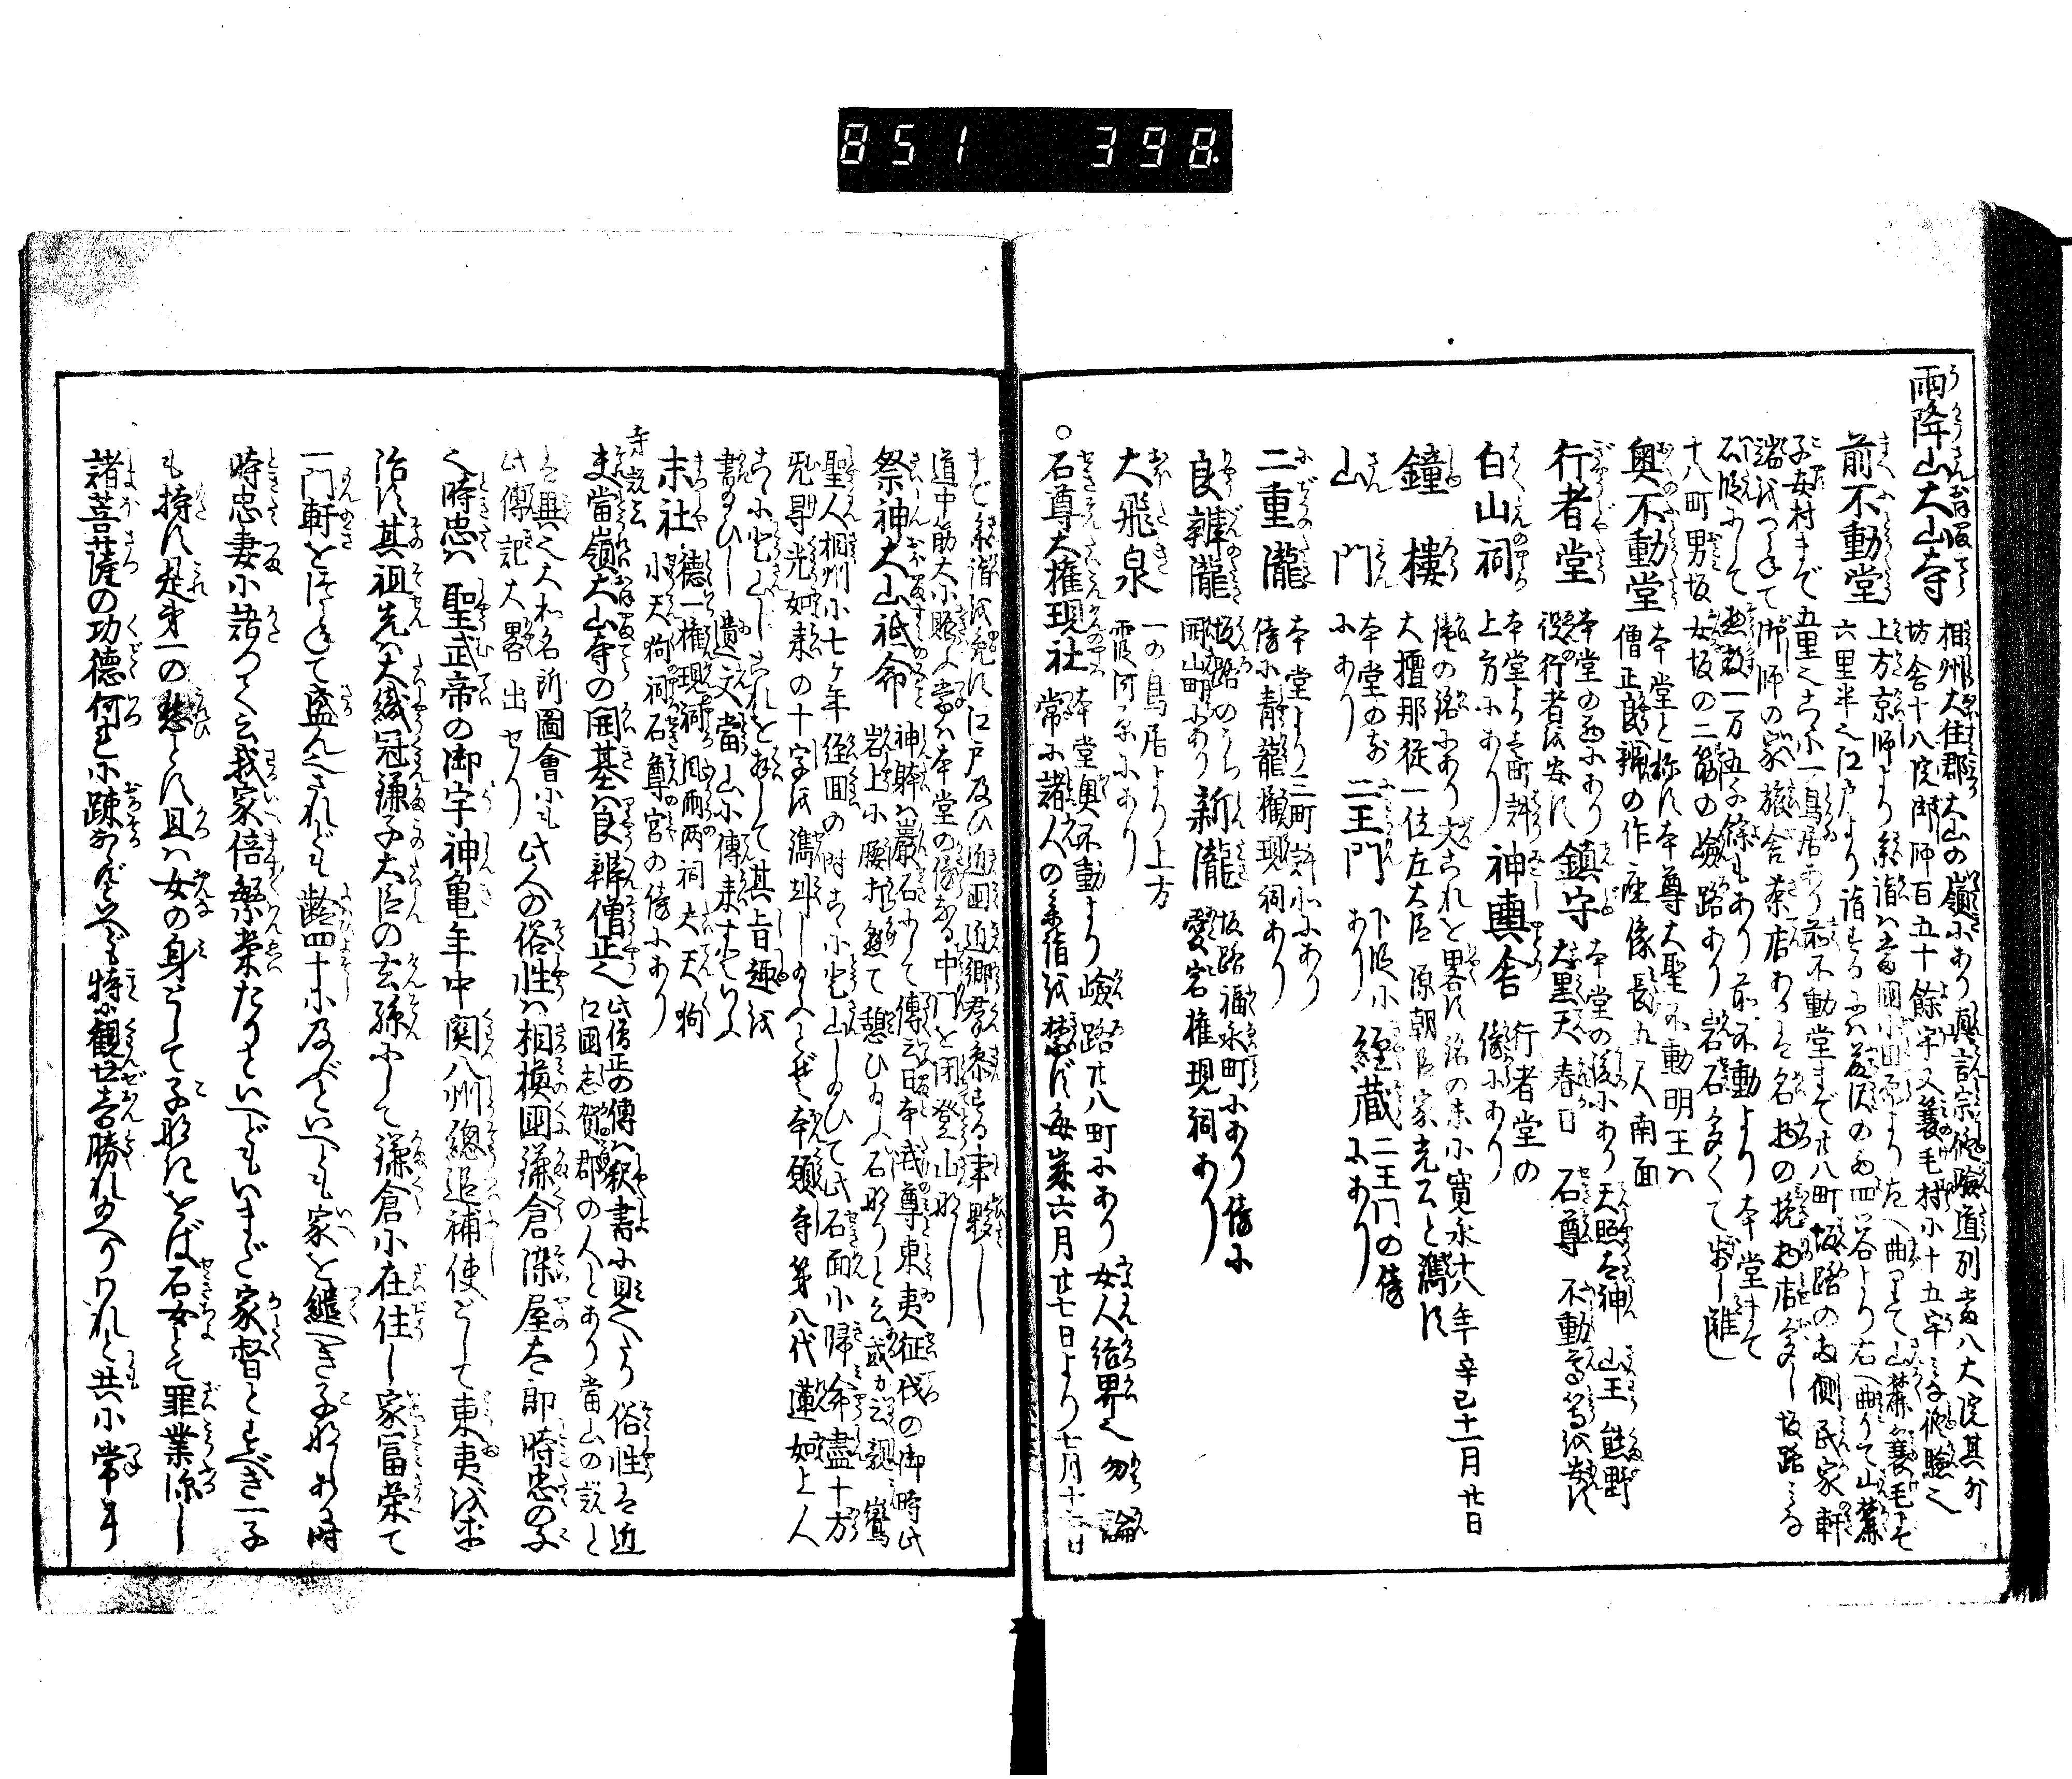 851 398
雨降山大山寺 相州大住郡大山の嶺にあり真言宗修験道別当八大院其外
坊舎十八院御師百五十餘宇又蓑毛村に十五宇みな修験之
前不動堂 上方京師より参詣は当国小田原より左へ曲りて山麓蓑毛まで
六里半之江戸より詣するには藤沢の西四谷より右へ曲りて山麓
子安村まで五里之こゝに一鳥居あり前不動堂まで廿八町坂路の両側民家軒
端をつらねて御師の家旅舎茶店ある名物の挽物店多し坂路みな
石階にして惣数一万五千餘もあり前不動より本堂まで
十八町男坂女坂の二筋の嶮路あり岩石多くて歩し難し
奥不動堂 本堂と称す本尊大聖不動明王は
僧正良辨の作座像長五尺南面
行者堂 本堂の西にあり 役行者を安す 鎮守 本堂の後にあり天照太神 山王 熊野
大黒天 春日 石尊 不動等を安す
白山祠 本堂より壱町許 上方にあり 神輿舎 行者堂の 傍にあり
鐘樓 滝の路にあり文これを畧す銘の末に寛永十八年辛巳十一月廿日
大檀那従一位左大臣源朝臣家光公と鐫す
山門 本堂のまへ にあり 二王門 下階に あり 経蔵 二王門の傍 にあり
二重瀧 本堂より二町許北にあり
傍に青龍権現祠あり
良辨瀧 坂路のうち 開山町にあり 新瀧 坂路福永町にあり傍に 愛宕権現祠あり
大飛泉 一の鳥居より上方
霞河原にあり
○石尊大権現社 本堂奥不動より嶮路廿八町にあり女人結界之勿論
常に諸人の参詣を禁ず毎歳六月廿七日より七月十七日
まで参詣を免す江戸及ひ近国近郷群参する事夥し
道中筋大に賑ふ常は本堂の傍なる中門を閉登山なし
祭神大山祇命 神躰は巌石にして傳云日本武尊東夷征伐の御時此
岩上に腰打懸て憩ひ給ふ石なりと云或カ云親鸞
聖人相州に七ケ年経回の時こゝに登山し給ひて此石面に歸命盡十方
无㝵光如来の十字を鐫刻し給ふとぞ本願寺第八代蓮如上人
こゝに登山しこれを拝して其旨趣を
書給ひし遺文當山に傳来すと云ふ
末社 徳一権現祠 風雨両祠 大天狗
小天狗祠 石尊の宮の傍にあり
寺説云
夫當嶺大山寺の開基は良辨僧正之 此僧正の傳は釈書に見へたり俗性は近
江国志賀郡の人とあり當山の説と
は異之大和名所圖會にも
此傳記大畧出せり 此人の俗性は相模国鎌倉深屋太郎時忠の子
之時忠は聖武帝の御宇神亀年中関八州總追補使として東夷を平
治す其祖先は大織冠鎌子大臣の玄孫にして鎌倉に在住し家冨栄て
一門軒をつらねて盛んなされども齢四十に及ぶといへども家を継べき子なしある時
時忠妻に語つて云我家倍繁栄たりといへどもいまだ家督とすべき一子
も持ず是第一の愁とす且は女の身として子なきをば石女とて罪業深し
諸菩薩の功徳何れに疎あらずといへども特に観世音勝れ給へりわれと共に常に